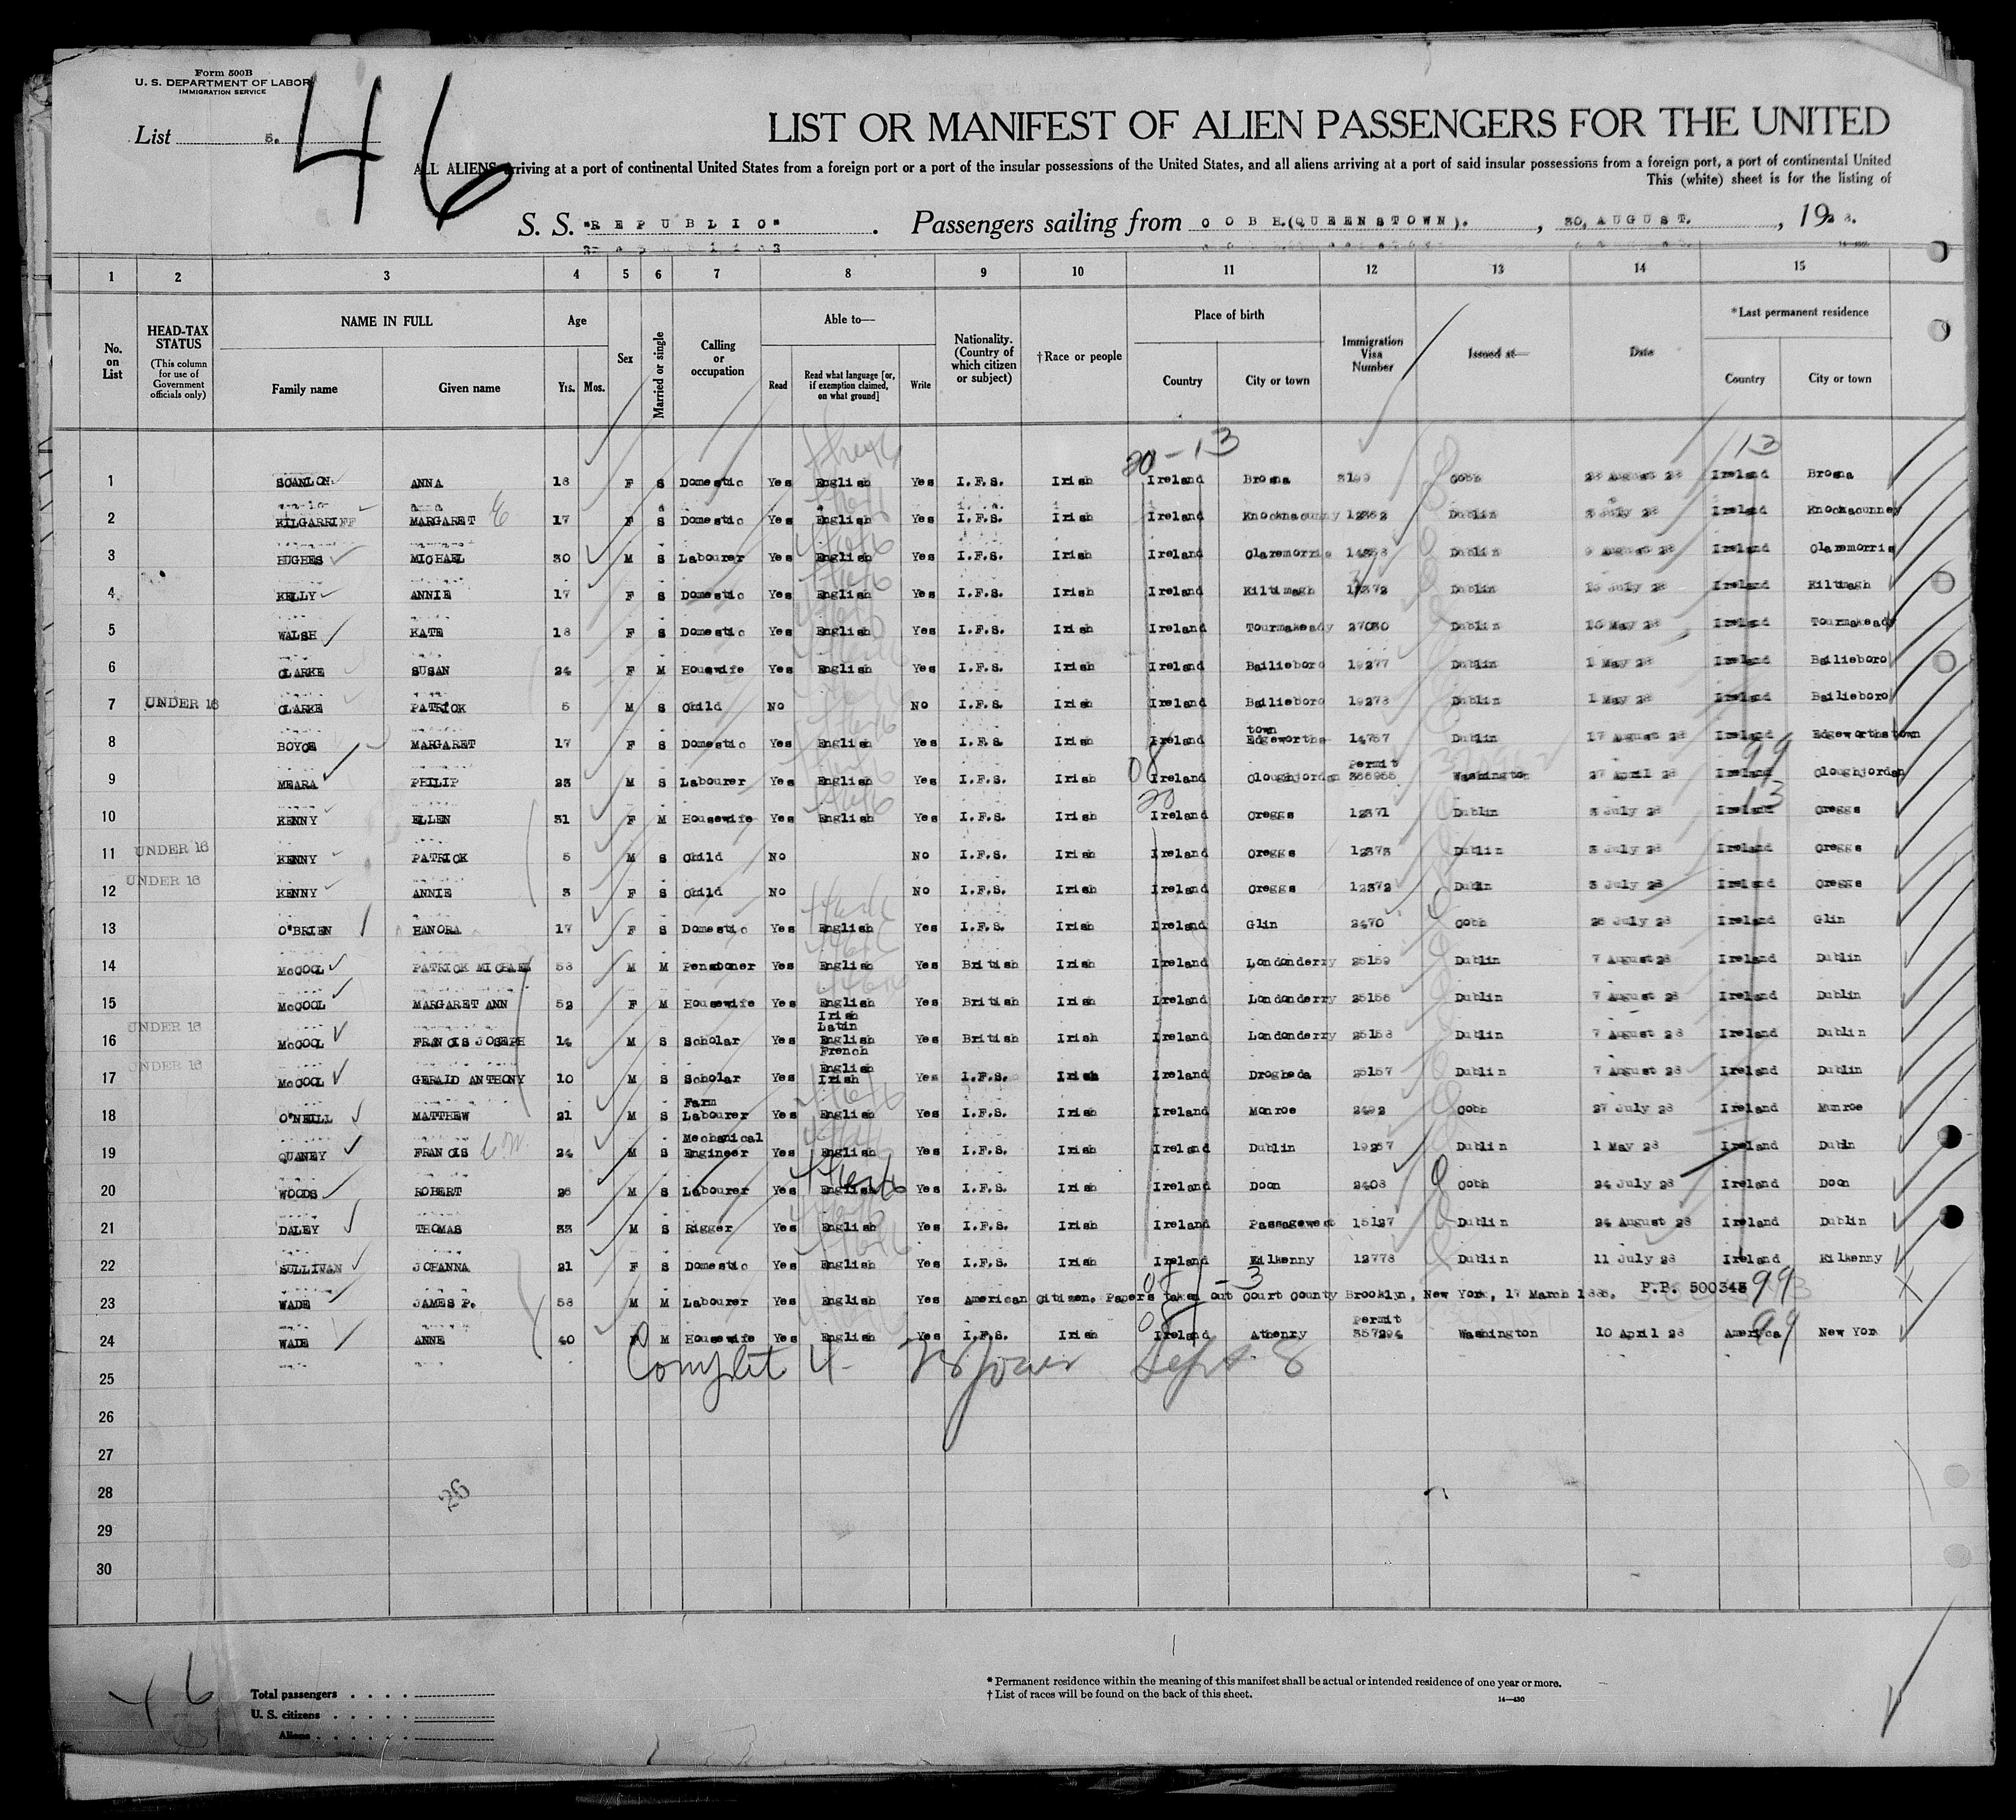 Form 500B
U. S. DEPARTMENT OF LABOR
IMMIGRATION SERVICE
List 5.
46
LIST OR MANIFEST OF ALIEN PASSENGERS FOR THE UNITED
ALL ALIENS arriving at a port of continental United States from a foreign port or a port of the insular possessions of the United States, and all aliens arriving at a port of said insular possessions from a foreign port, a port of continental United
This (white) sheet is for the listing of
S. S. "REPUBLIC". Passengers sailing from COBH.(QUEENSTOWN). , 30, AUGUST. , 1928.
1 2 3 4 5 6 7 8 9 10 11 12 13 14 15
No. on List
HEAD-TAX STATUS (This column for use of Government officials only)
NAME IN FULL
Family name Given name
Age
Yrs. Mos.
Sex
Married or single
Calling or occupation
Able to—
Read Read what language [or, if exemption claimed, on what ground] Write
Nationality. (Country of which citizen or subject)
†Race or people
Place of birth
Country City or town
Immigration Visa Number
Issued at—
Date
*Last permanent residence
Country City or town
20-13 13
1 SCANLON ANNA 18 F S Domestic Yes English Yes I.F.S. Irish Ireland Brosna 3199 Cobh 28 August 28 Ireland Brosna
2 KILGARRIFF MARGARET 17 F S Domestic Yes English Yes I.F.S. Irish Ireland Knocknacunny 12362 Dublin 3 July 28 Ireland Knockacunney
3 HUGHES MICHAEL 30 M S Labourer Yes English Yes I.F.S. Irish Ireland Claremorris Dublin August 28 Ireland Claremorris
4 KELLY ANNIE 17 F S Domestic Yes English Yes I.F.S. Irish Ireland Kiltimagh Dublin July 28 Ireland Kiltimagh
5 WALSH KATE 18 F S Domestic Yes English Yes I.F.S. Irish Ireland Tourmakeady 27030 Dublin 16 May 28 Ireland Tourmakeady
6 CLARKE SUSAN 24 F M Housewife Yes English Yes I.F.S. Irish Ireland Bailieboro 19277 Dublin 1 May 28 Ireland Bailieboro
7 UNDER 16 CLARKE PATRICK 5 M S Child No No I.F.S. Irish Ireland Bailieboro 19278 Dublin 1 May 28 Ireland Bailieboro
8 BOYCE MARGARET 17 F S Domestic Yes English Yes I.F.S. Irish Ireland Edgeworths town 14757 Dublin 17 August 28 Ireland Edgeworthstown
9 MEARA PHILIP 23 M S Labourer Yes English Yes I.F.S. Irish Ireland Cloughjordan Permit 386955 Washington 27 April 28 Ireland Cloughjordan
10 KENNY ELLEN 31 F M Housewife Yes English Yes I.F.S. Irish Ireland Creggs 12371 Dublin 3 July 28 Ireland Creggs
11 UNDER 16 KENNY PATRICK 5 M S Child No No I.F.S. Irish Ireland Creggs 12373 Dublin 3 July 28 Ireland Creggs
12 UNDER 16 KENNY ANNIE 3 F S Child No No I.F.S. Irish Ireland Creggs 12372 Dublin 3 July 28 Ireland Creggs
13 O'BRIEN HANORA 17 F S Domestic Yes English Yes I.F.S. Irish Ireland Glin 2470 Cobh 26 July 28 Ireland Glin
14 McCOOL PATRICK MICHAEL 58 M M Pensioner Yes English Yes British Irish Ireland Londonderry 25159 Dublin 7 August 28 Ireland Dublin
15 McCOOL MARGARET ANN 52 F M Housewife Yes English Yes British Irish Ireland Londonderry 25156 Dublin 7 August 28 Ireland Dublin
16 UNDER 16 McCOOL FRANCIS JOSEPH 14 M S Scholar Yes Irish Latin English French Yes British Irish Ireland Londonderry 25158 Dublin 7 August 28 Ireland Dublin
17 UNDER 16 McCOOL GERALD ANTHONY 10 M S Scholar Yes English Irish Yes I.F.S. Irish Ireland Drogheda 25157 Dublin 7 August 28 Ireland Dublin
18 O'NEILL MATTHEW 21 M S Farm Labourer Yes English Yes I.F.S. Irish Ireland Monroe 2492 Cobh 27 July 28 Ireland Munroe
19 QUANEY FRANCIS 24 M S Mechanical Engineer Yes English Yes I.F.S. Irish Ireland Dublin 19267 Dublin 1 May 28 Ireland Dublin
20 WOODS ROBERT 26 M S Labourer Yes English Yes I.F.S. Irish Ireland Doon 2408 Cobh 24 July 28 Ireland Doon
21 DALEY THOMAS 33 M S Rigger Yes English Yes I.F.S. Irish Ireland Passagewest 15127 Dublin 24 August 28 Ireland Dublin
22 SULLIVAN JOHANNA 21 F S Domestic Yes English Yes I.F.S. Irish Ireland Kilkenny 12778 Dublin 11 July 28 Ireland Kilkenny
23 WADE JAMES P. 58 M M Labourer Yes English Yes American Citizen. Papers taken out Court County Brooklyn, New York, 17 March P.P. 500345 99
24 WADE ANNE 40 F M Housewife Yes English Yes I.F.S. Irish Ireland Athenry Permit 357294 Washington 10 April 28 America New Yor
Sept 8
25
26
27
28
29
30
46
Total passengers . . . .
U. S. citizens . . . . .
Aliens . . . . . .
* Permanent residence within the meaning of this manifest shall be actual or intended residence of one year or more.
† List of races will be found on the back of this sheet.
14—430